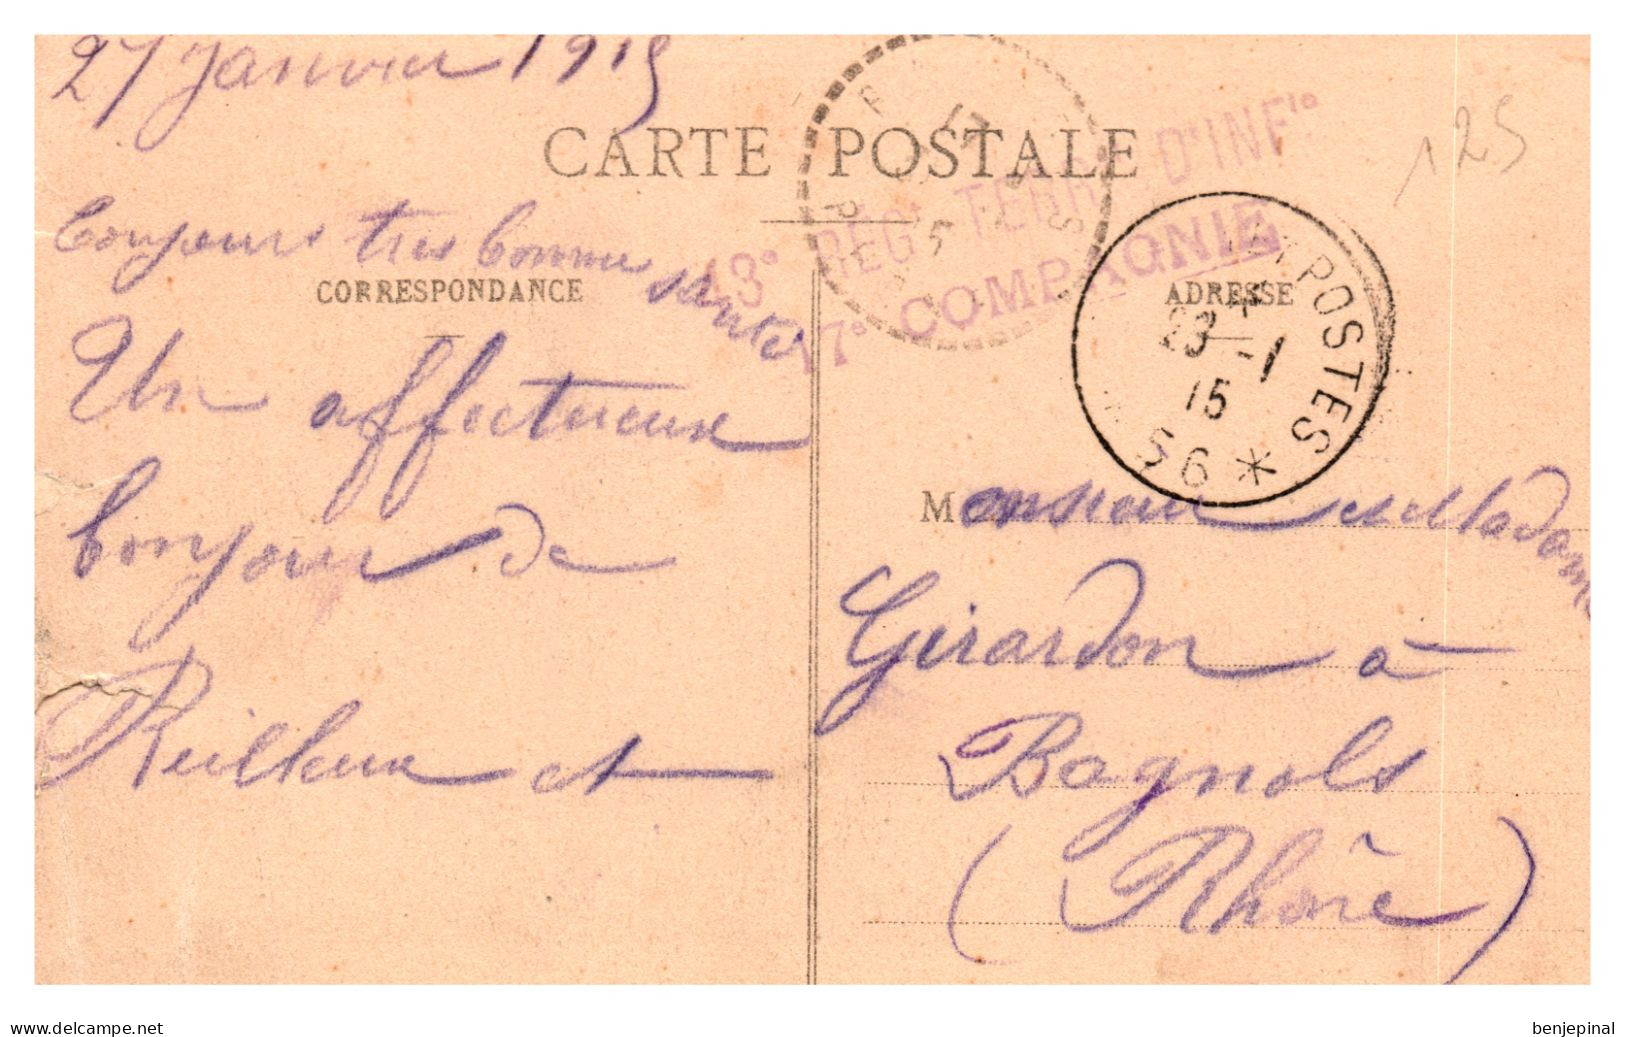 27 Janvier 1915
CARTE POSTALE
125
Toujours tres bonne santé
CORRESPONDANCE
ADRESSE
RÉGT TERRAL D'INFIE
7e COMPAGNIE
POSTES
23 -1
15
* 56 *
Un affectueux
bonjour de
et
Monsieur et Madame
Girardon à
Bagnols
(Rhône)
delcampe.net
benjepinal